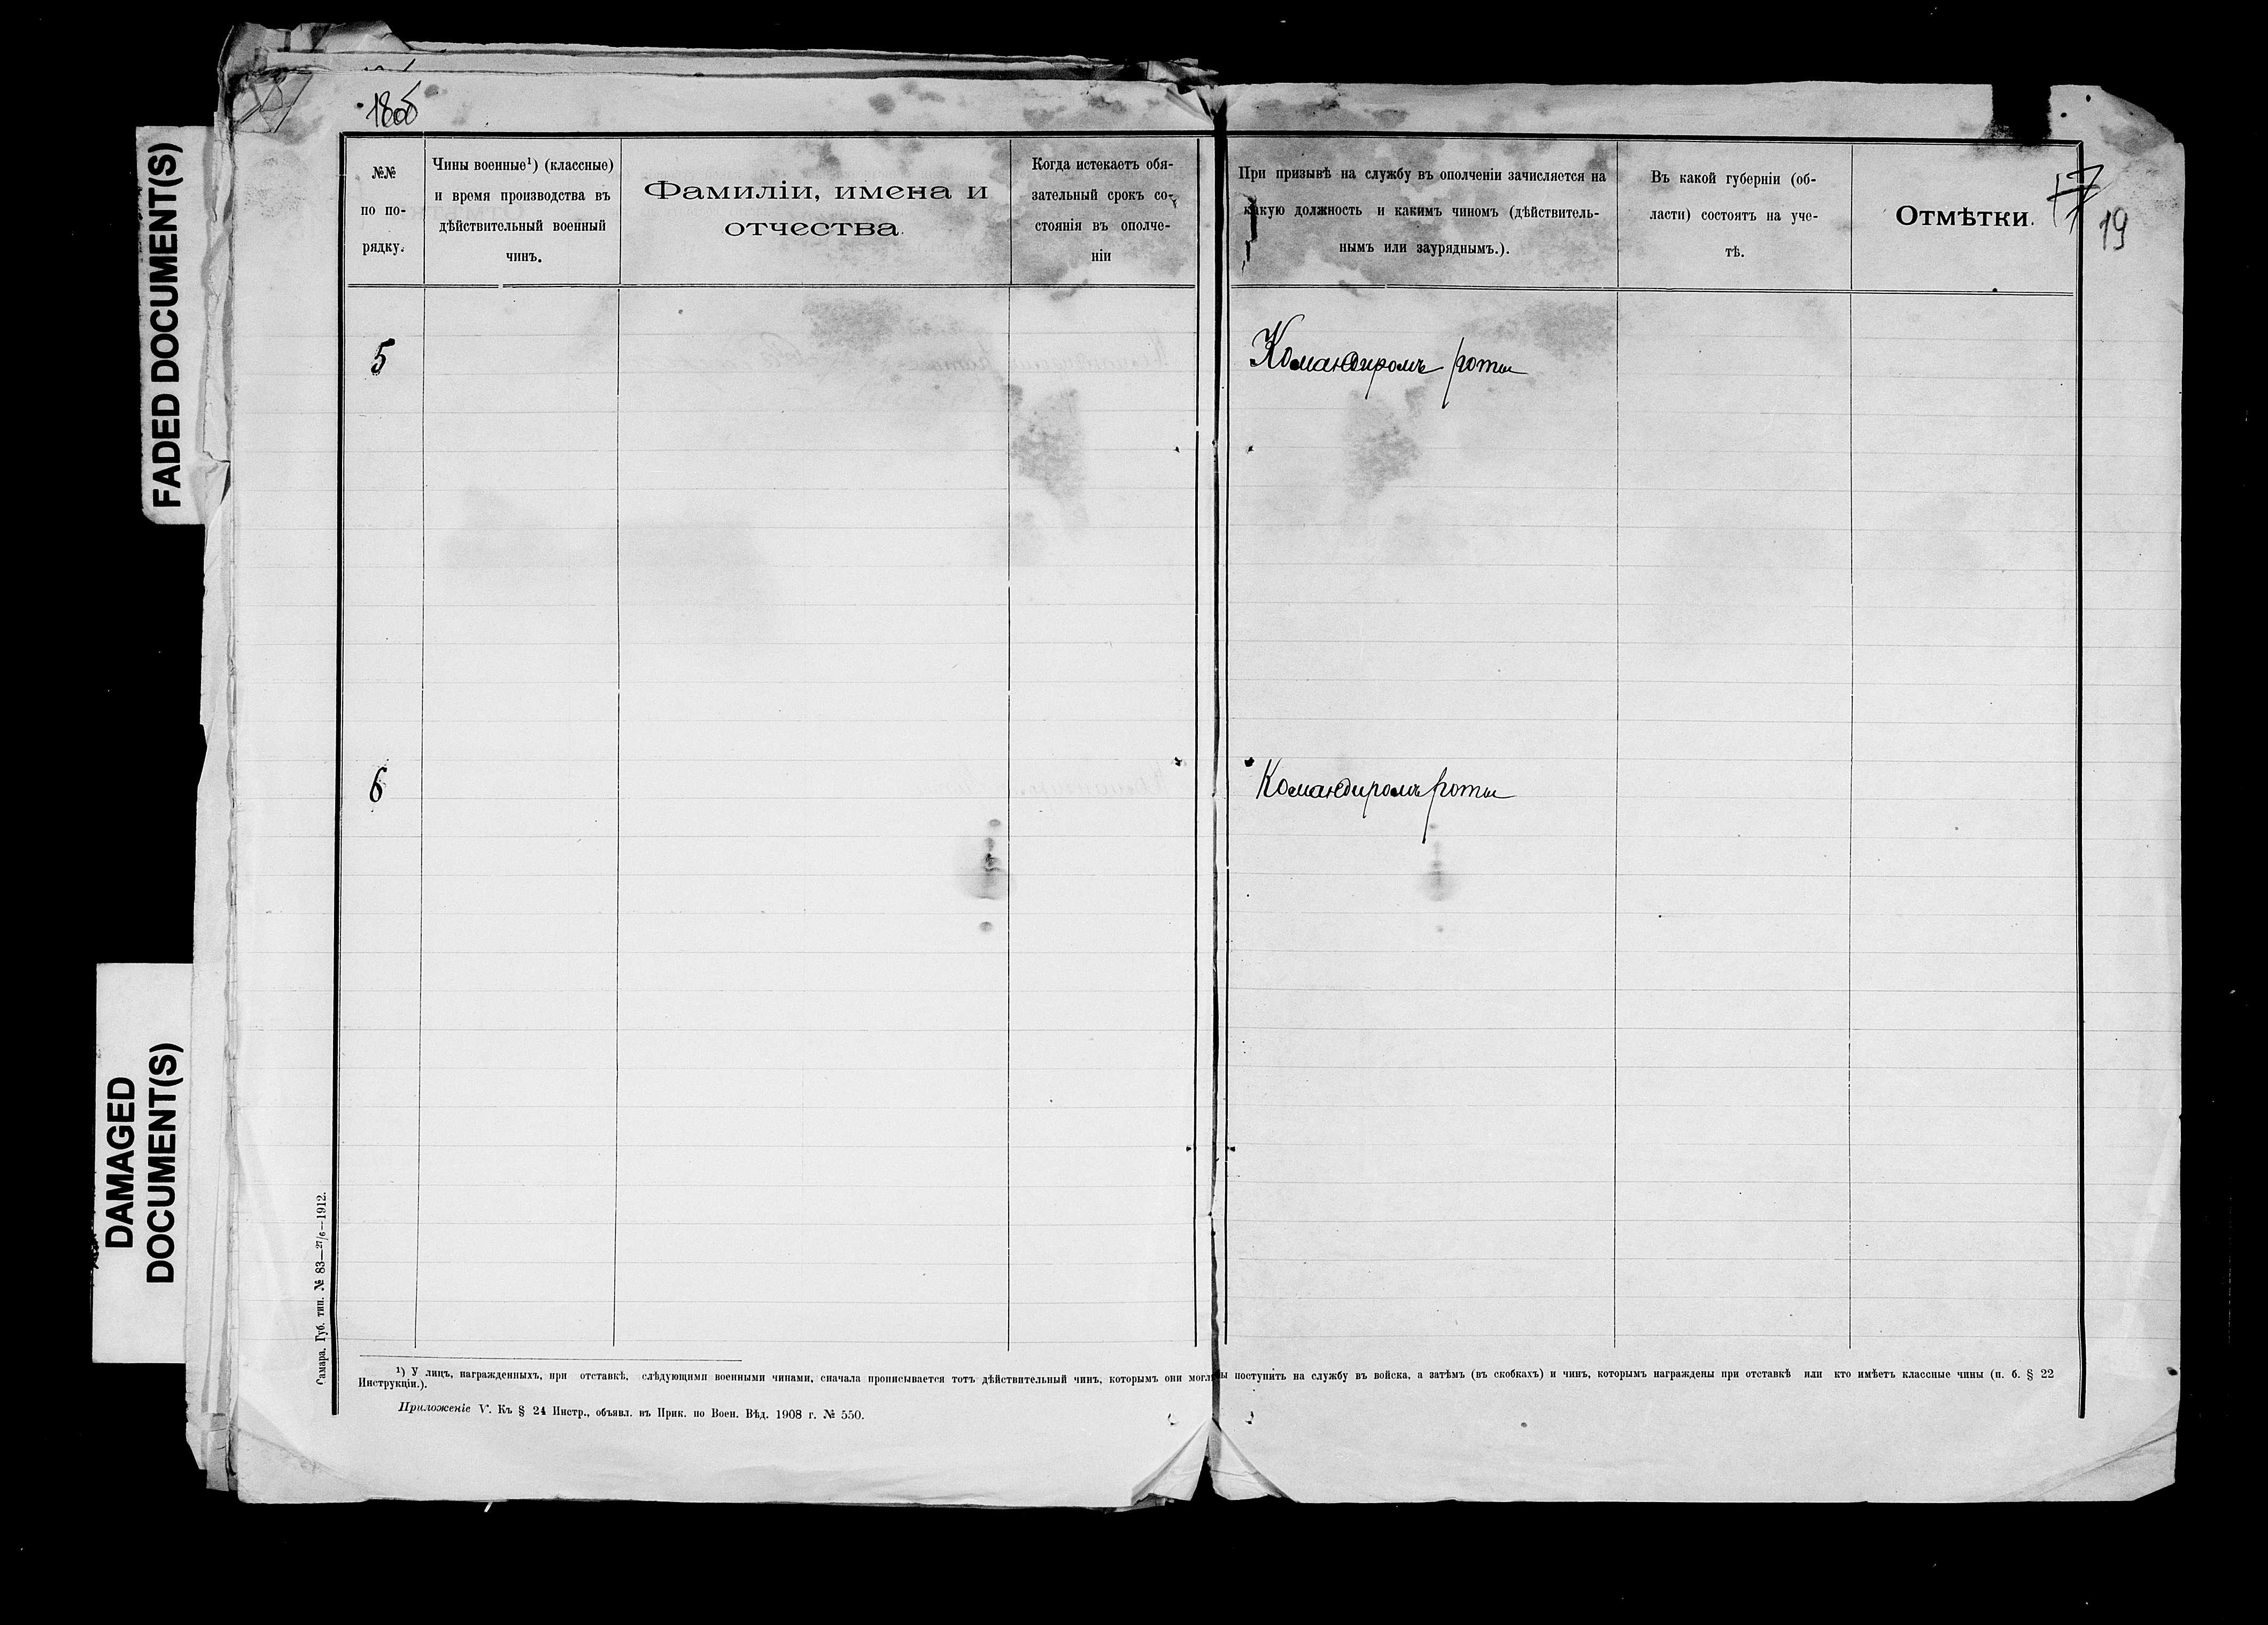 FADED DOCUMENT(S)
DAMAGED
DOCUMENT(S)
№№
по по-
рядку.
Чины военные¹) (классные)
и время производства въ
дѣйствительный военный
чинъ.
Фамиліи, имена и
отчества.
Когда истекаетъ обя-
зательный срокъ со-
стоянія въ ополче-
ніи
При призывѣ на службу въ ополченіи зачисляется на
какую должность и какимъ чиномъ (дѣйствитель-
нымъ или зауряднымъ.).
Въ какой губерніи (об-
ласти) состоятъ на уче-
тѣ.
Отмѣтки.
17
19
5
Командиромъ роты
6
Командиромъ роты
Самара. Губ. тип. № 83—27/6—1912.
¹) У лицъ, награжденныхъ, при отставкѣ, слѣдующими военными чинами, сначала прописывается тотъ дѣйствительный чинъ, которымъ они могли бы поступить на службу въ войска, а затѣмъ (въ скобкахъ) и чинъ, которымъ награждены при отставкѣ или кто имѣетъ классные чины (п. б. § 22
Инструкціи.).
Приложеніе V. Къ § 24 Инстр., объявл. въ Прик. по Воен. Вѣд. 1908 г. № 550.